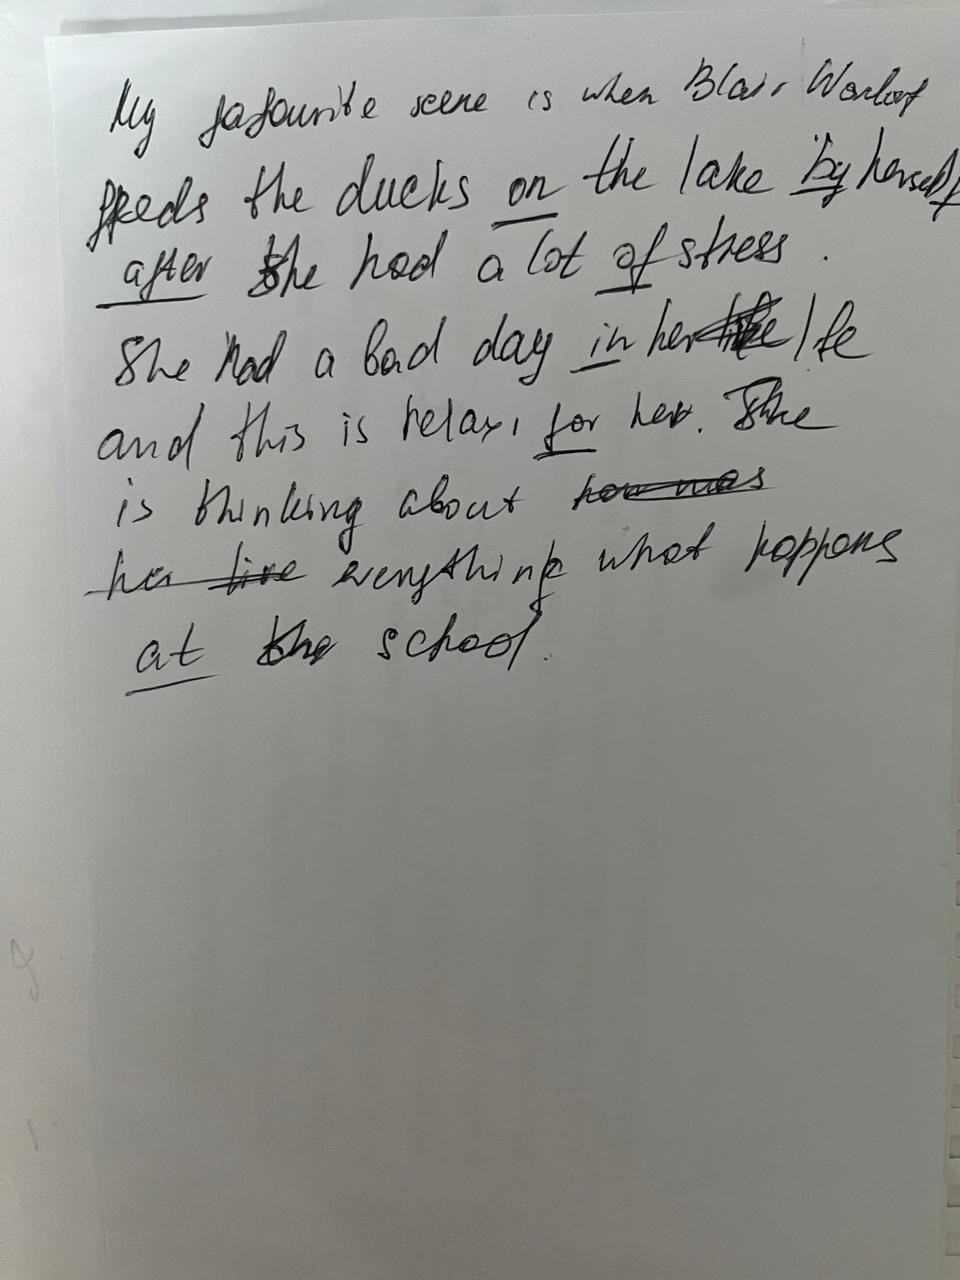 My fafourite scene is when Blair Worlof
feeds the ducks on the lake by herself
after she had a lot of stress.
She had a bad day in her life
and this is relax, for her. She
is thinking about
everything what happens
at the school.